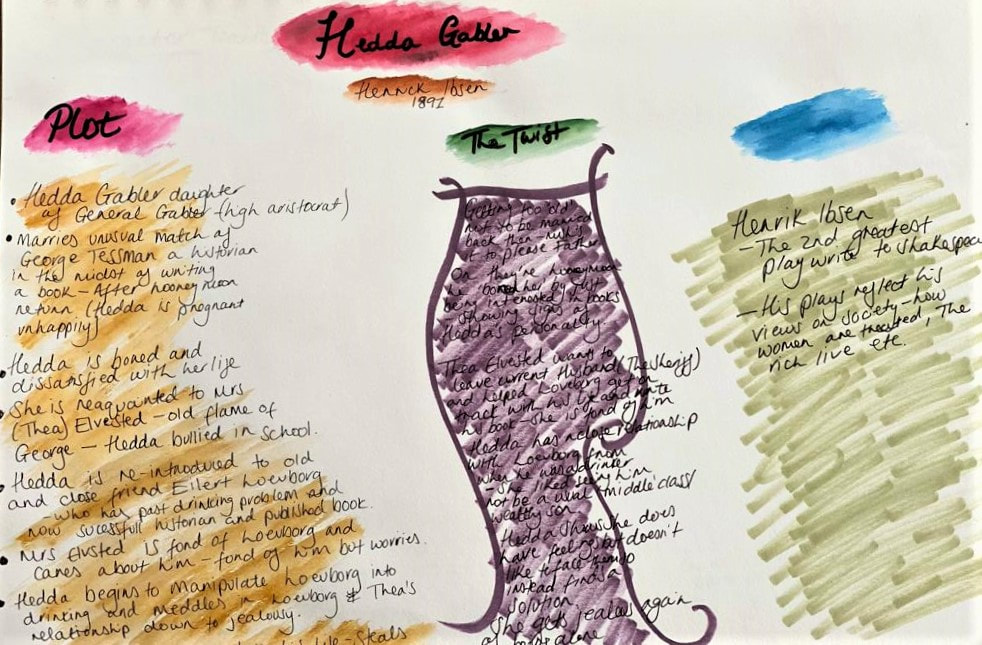 Hedda Gabler
Henrick Ibsen
1891
Plot
• Hedda Gabler daughter
of General Gabler (high aristocrat)
• Marries unusual match of
George Tessman a historian
in the midst of writing
a book - After hooneymoon
return (Hedda is phegnant
unhappily)
• Hedda is bored and
dissatsfied with her life
• She is reaquanted to Mrs
(Thea) Elvested - old flame of
George - Hedda bullied in school.
• Hedda is re-introduced to old
and close friend Eilert Loevborg
- who has past drinking problem and
now sucessfull historian and published book.
• Mrs Elvsted is fond of Loevborg and
cares about him - fond of him but worries.
• Hedda begins to manipulate Loevborg into
drinking and meddles in Loevborg & Thea's
relationship down to jealousy.
life - Steals
The Twist
Getting too old
not to be married
back then - rush's
it to please father
On they're hooneymoon
he bored her by just
being interested in books
showing signs of
Hedda's personality.
Thea Elvested wants to
leave current Husband (The Sheriff)
and helped Loevborg get on
track with his life and write
his book - she is fond of him
Hedda has a close relationship
with Loevborg from
when he was a drinker
- she liked seeing him
not be a usual 'middle class/
wealthy son
Hedda shows she does
have feelings but doesn't
like to face them so
instead finds a
solution
She gets jealous again
of being alone
Henrik Ibsen
- The 2nd greatest
playwrite to shakespeare
- His plays reflect his
views on society - how
women are treated, The
rich live etc.